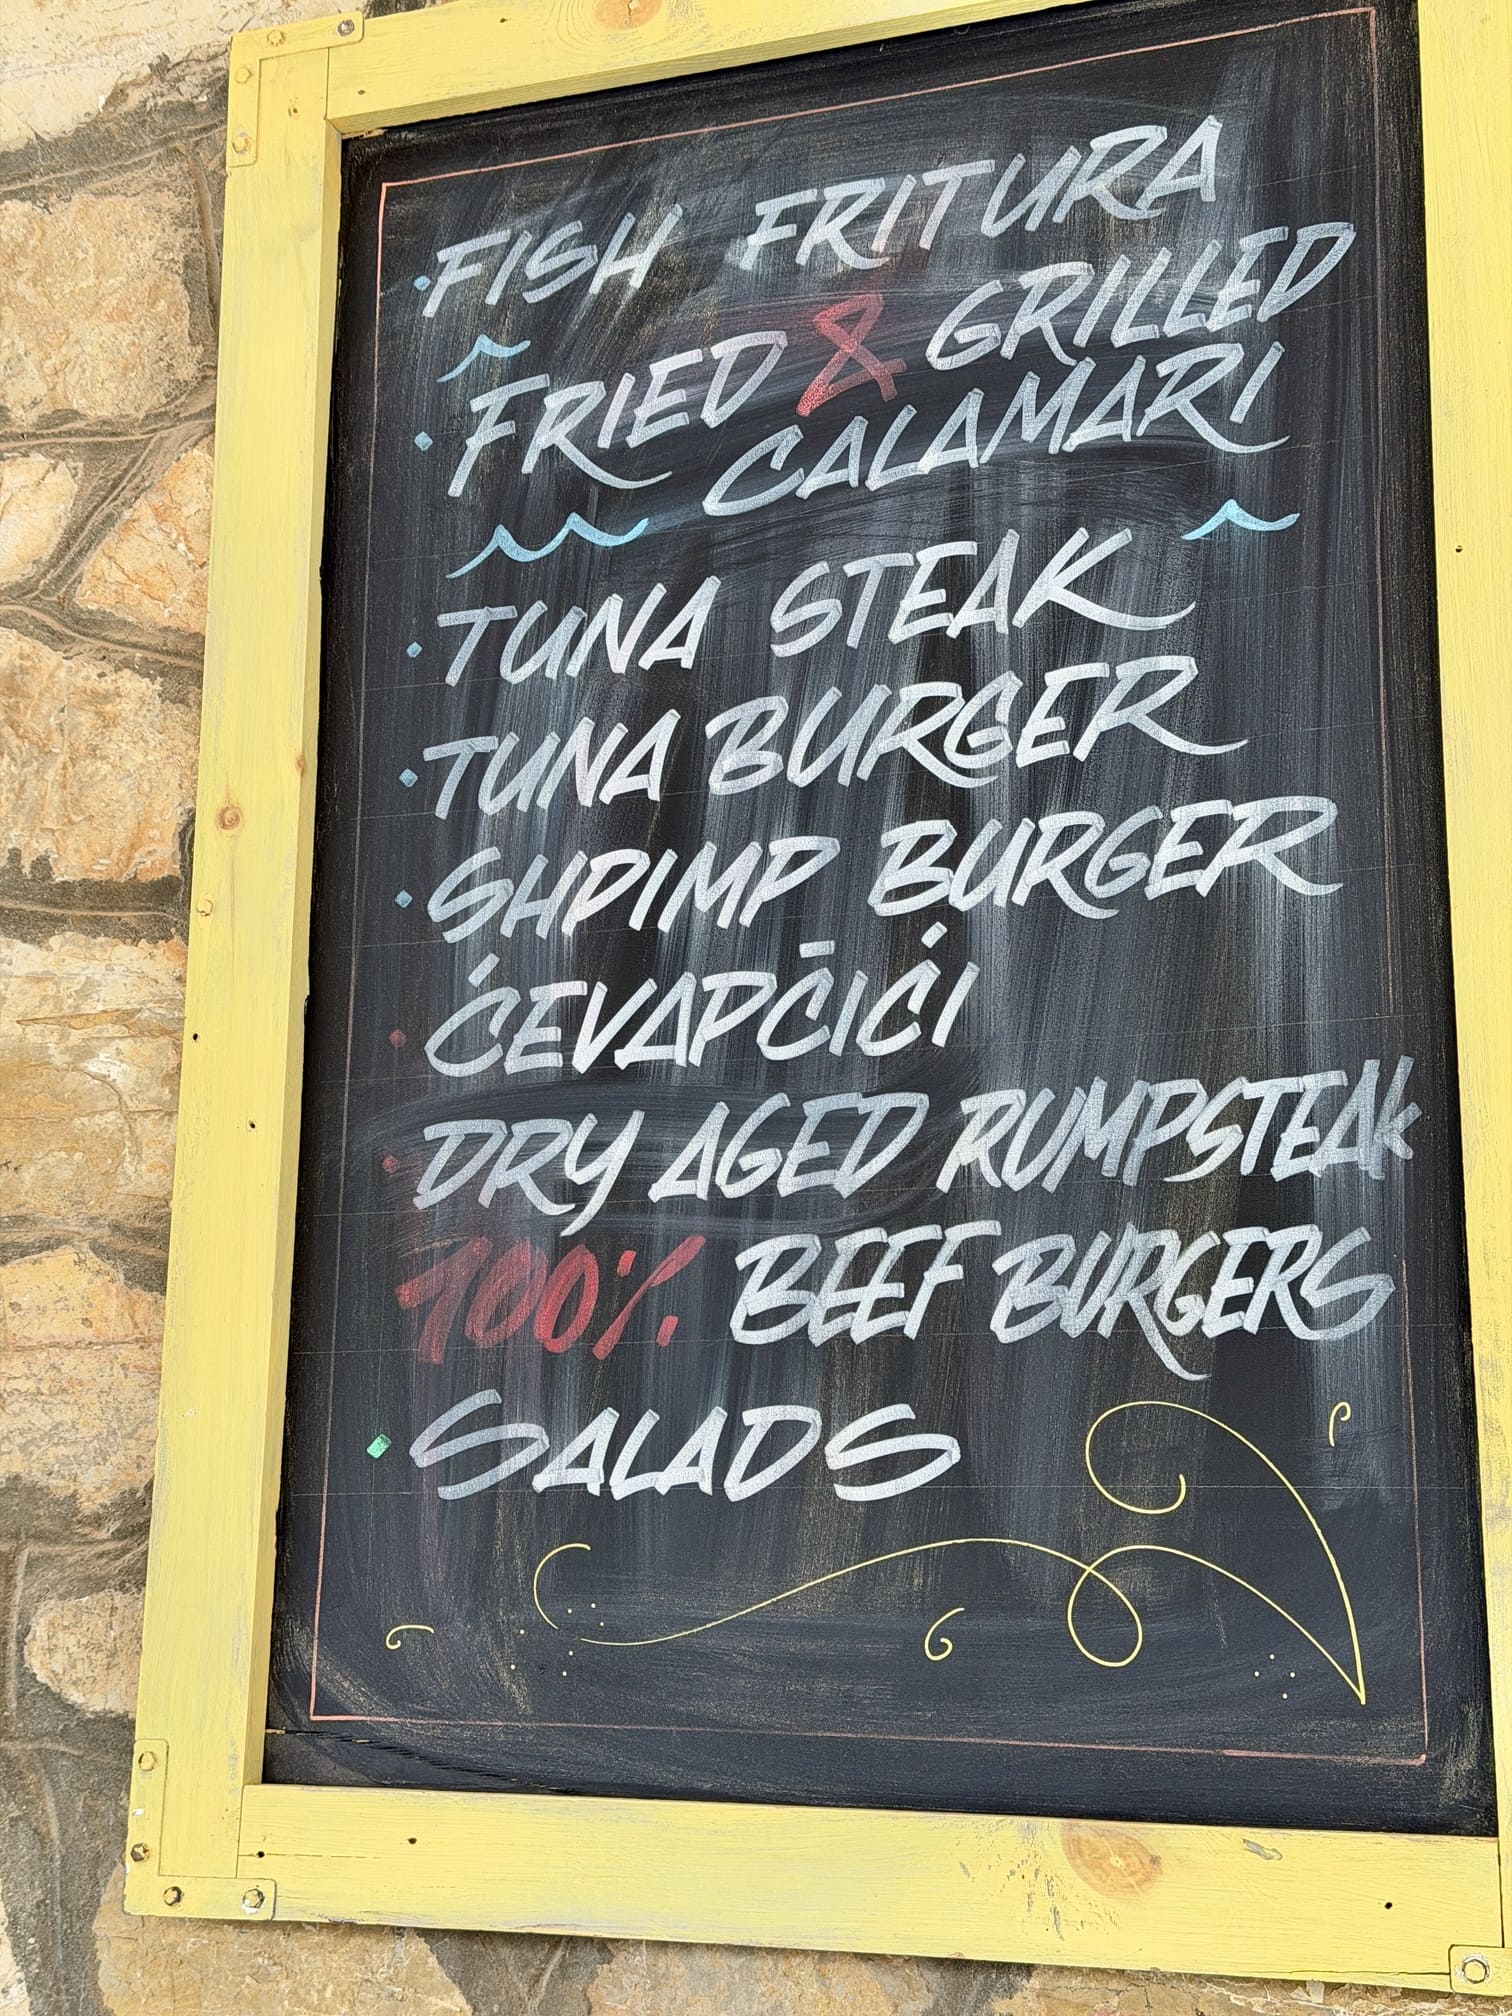 FISH FRITURA
FRIED & GRILLED
CALAMARI
TUNA STEAK
TUNA BURGER
SHPIMP BURGER
ĆEVAPČIĆI
DRY AGED RUMPSTEAK
100% BEEF BURGERS
SALADS